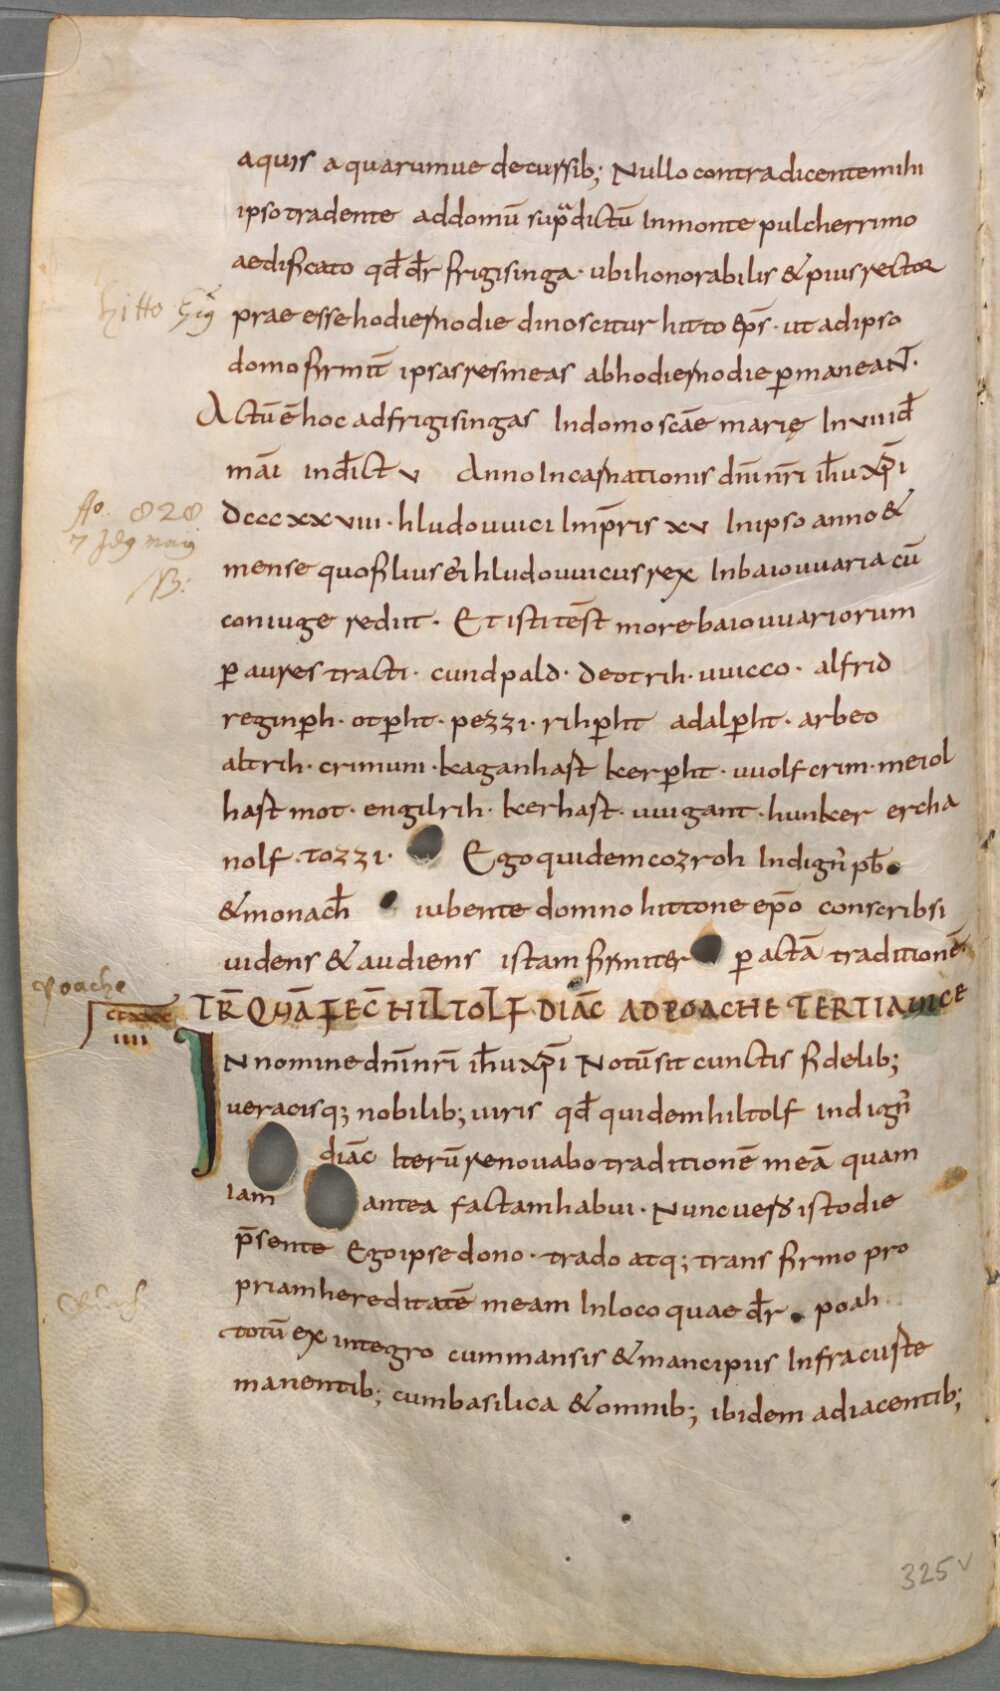 aquis aquarumue decursib; Nullo contradicente mihi
ipso tradente ad domū supᵃdictū In monte pulcherrimo
aedificato qđ dr̄ frigisinga · ubi honorabilis & pius rector
hitto
prae esse hodierno die dinoscitur hitto ep̄s · ut ad ipso
domo firmit̄ ipsas res meas ab hodierno die ꝑmaneaNT·
Actū ē hoc ad frigisingas In domo scāe marię In uiiiđ
māi indict̄ v Anno Incarnationis dn̄i nr̄i ih̄u xp̄i
Ao. 828
dcccxxviii · hludouuici Imp̄ris xv In ipso anno &
7 Idꝰ maij
mense quo filius ei hludouuicus rex In baiouuaria cū
coniuge rediit · Et isti test̄ more baiouuariorum
ꝑ aures tracti · cundpald · deotrih · uuicco · alfrid
reginꝑh · otꝑht · pezzi · rihꝑht adalꝑht · arbeo
altrih · crimuni · kaganhast kerꝑht · uuolfcrim · meiol
hast mot · engilrih · kerhast · uuigant · hunker ercha
nolf · tozzi · Ego quidem cozroh Indign̄ pb̄
& monach̄ iubente domno hittone ep̄o conscribsi
uidens & audiens istam firmiter ꝑactā traditionē
Poache
TR̄ QUĀ FEC̄ HILTOLF DIĀC AD POACHE TERTIA UICE
IIII
IN nomine dn̄i nr̄i ih̄u xp̄i Notū sit cunctis fidelib;
ueracisq; nobilib; uiris qđ quidem hiltolf indign̄
diāc Iterū renouabo traditionē meā quam
iam antea factam habui · Nunc uero isto die
p̄sente Ego ipse dono · trado atq; transfirmo pro
priam hereditatē meam In loco quae dr̄ poah
totū ex integro cum mansis & mancipiis Infra custe
manentib; cum basilica & omnib; ibidem adiacentib;
325v